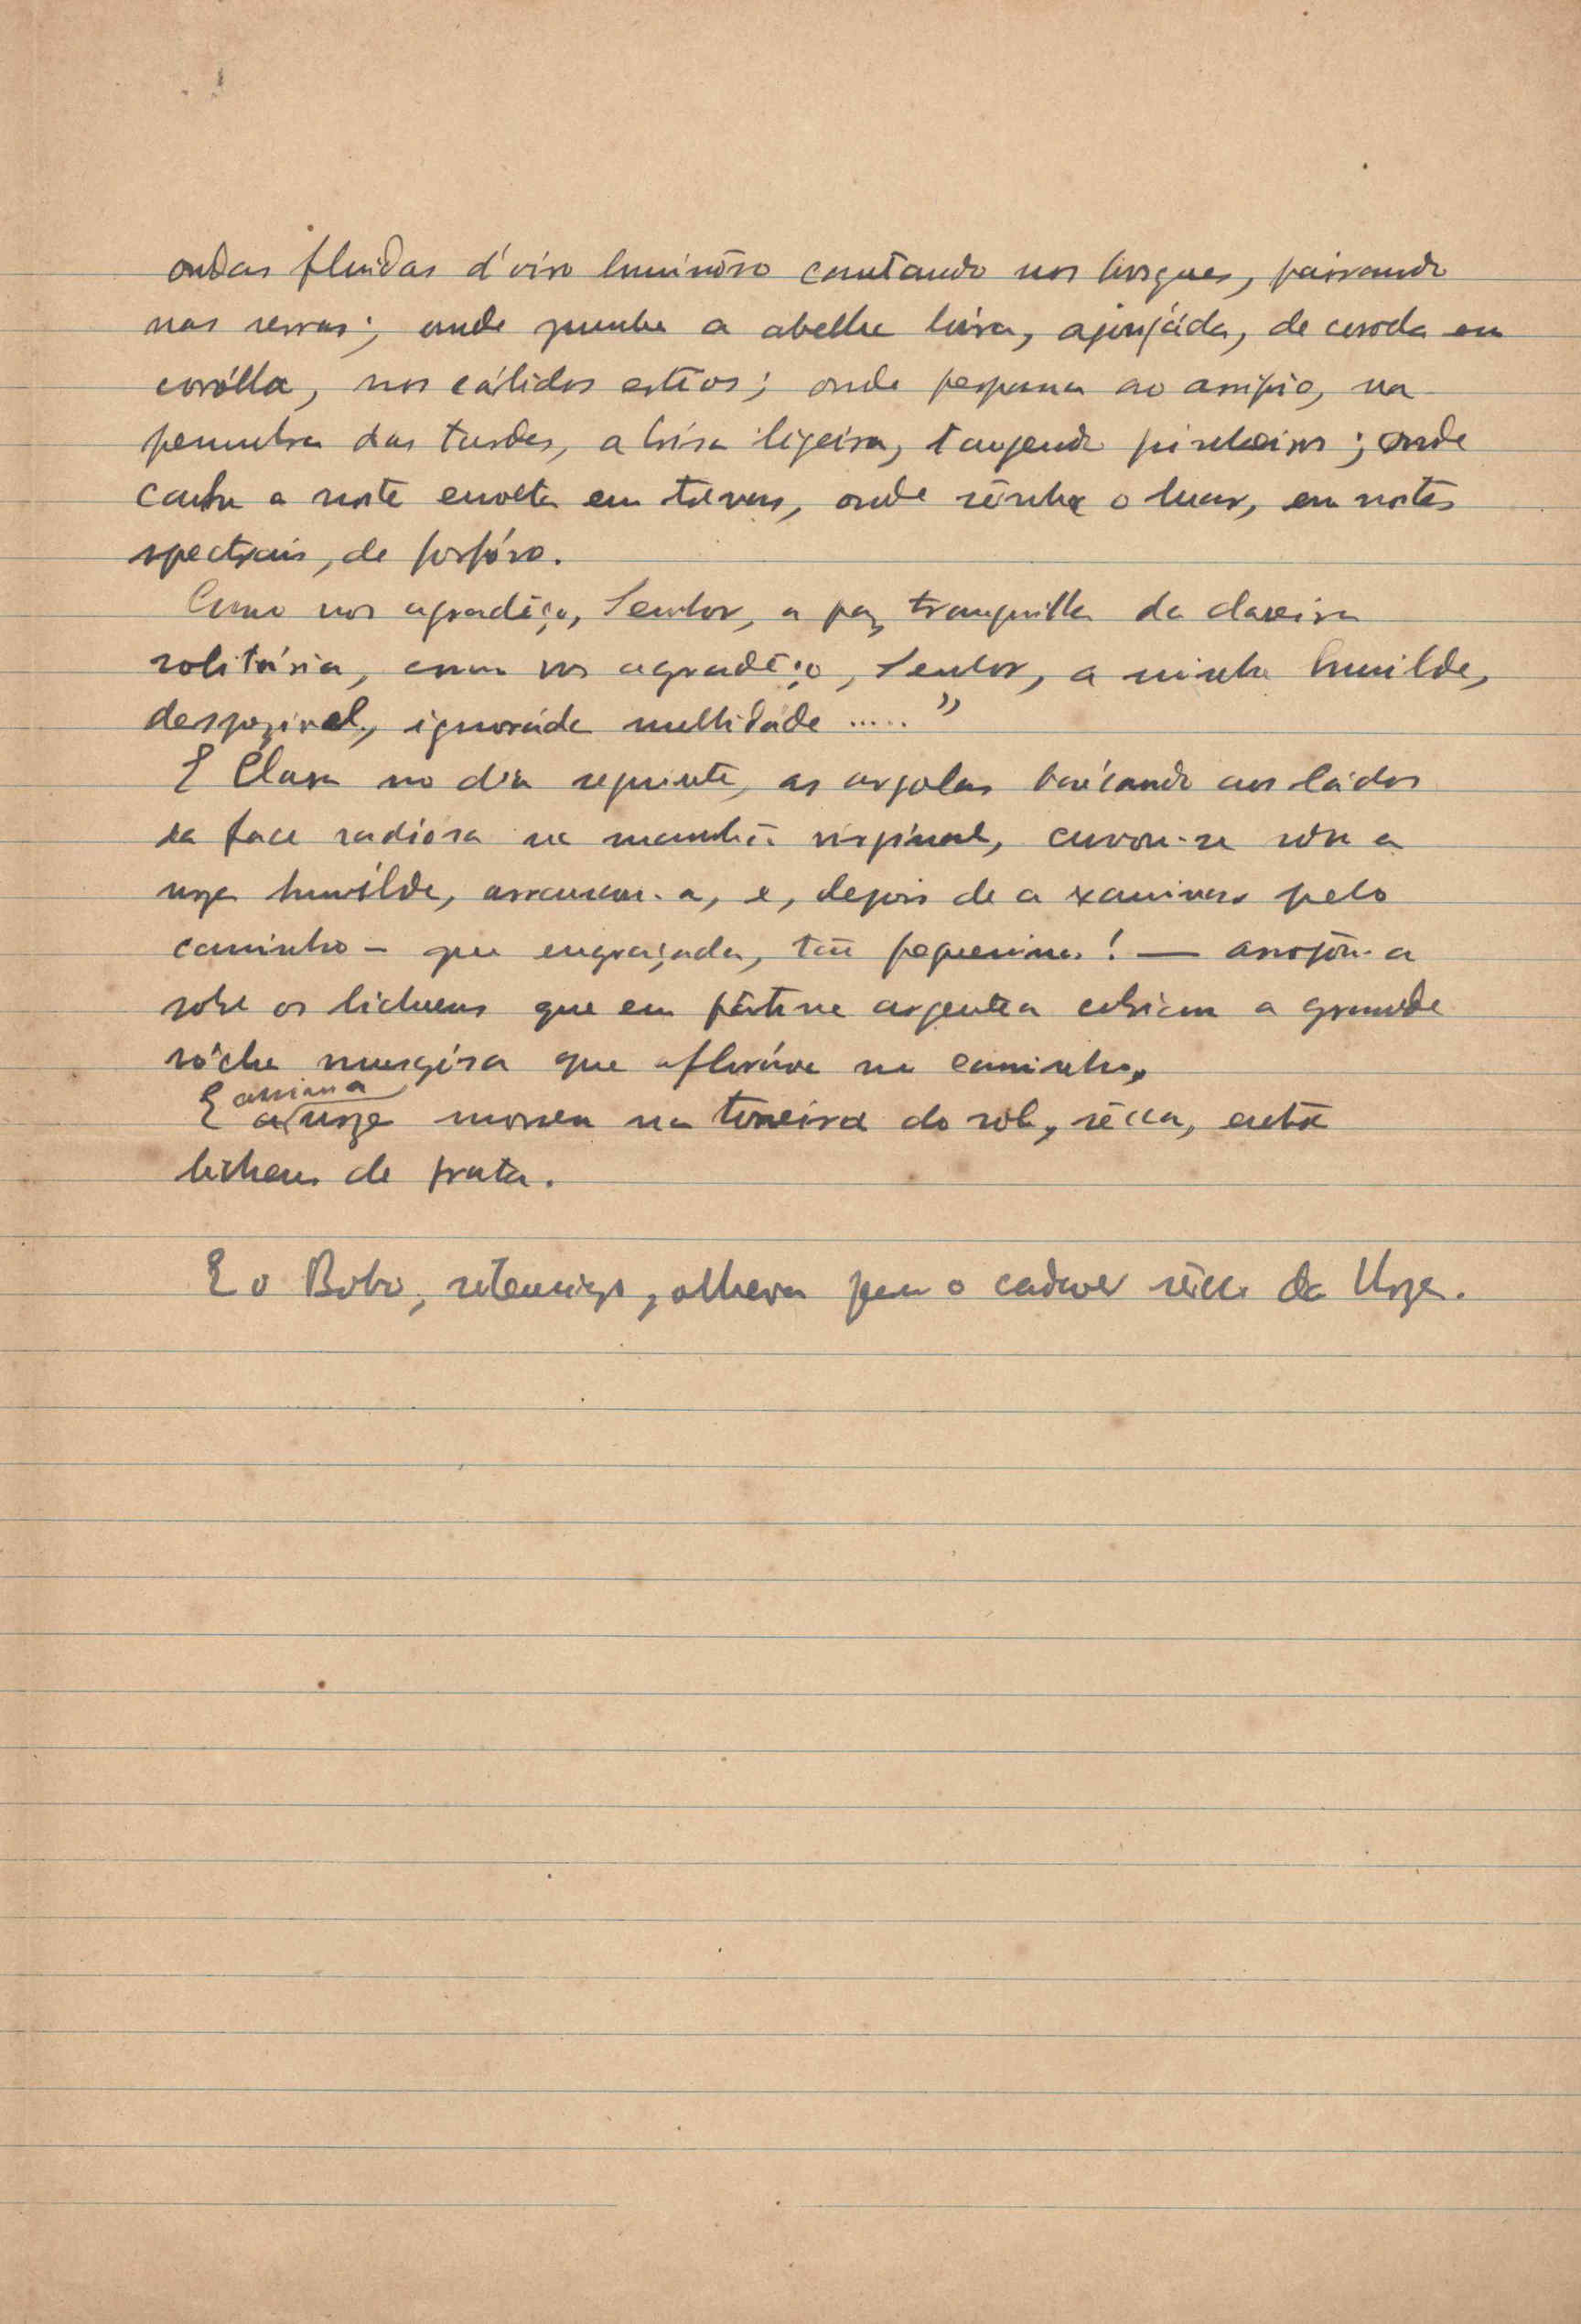 ondas fluidas d'ôiro luminôso cantando nos bosques, pairando
nas serras; onde zumbe a abelha loira, ajoujáda, de corola em
corólla, nos cálidos estîos; onde perpassa ao arripio, na
penumbra das tardes, a brisa ligeira, tangendo pinheiros; onde
canta a noite envolta em trevas, onde sônha o luar, em noites
spectrais, de fosfóro.
Como vos agradêço, Senhor, a paz tranquilla da clareira
solitária, como vos agradêço, Senhor, a minha humilde,
despozivel, ignoráda nullidáde ....."
E Clara no dia seguinte, as argolas baloiçando aos ládos
da face radiosa na manhã virginal, curvou-se sobre a
urze humilde, arrancou-a, e, depois de a examinar pelo
caminho – que engraçada, tão pequenina! — arrojou-a
sobre os lichens que em pátine argentea cobriam a grande
rócha musgósa que afloráva no caminho.
E assim a urze morreu na torreira do sol, sêcca, entre
lichens de prata.
E o Bobo, silencioso, olhava para o cadaver sêcco da Urze.